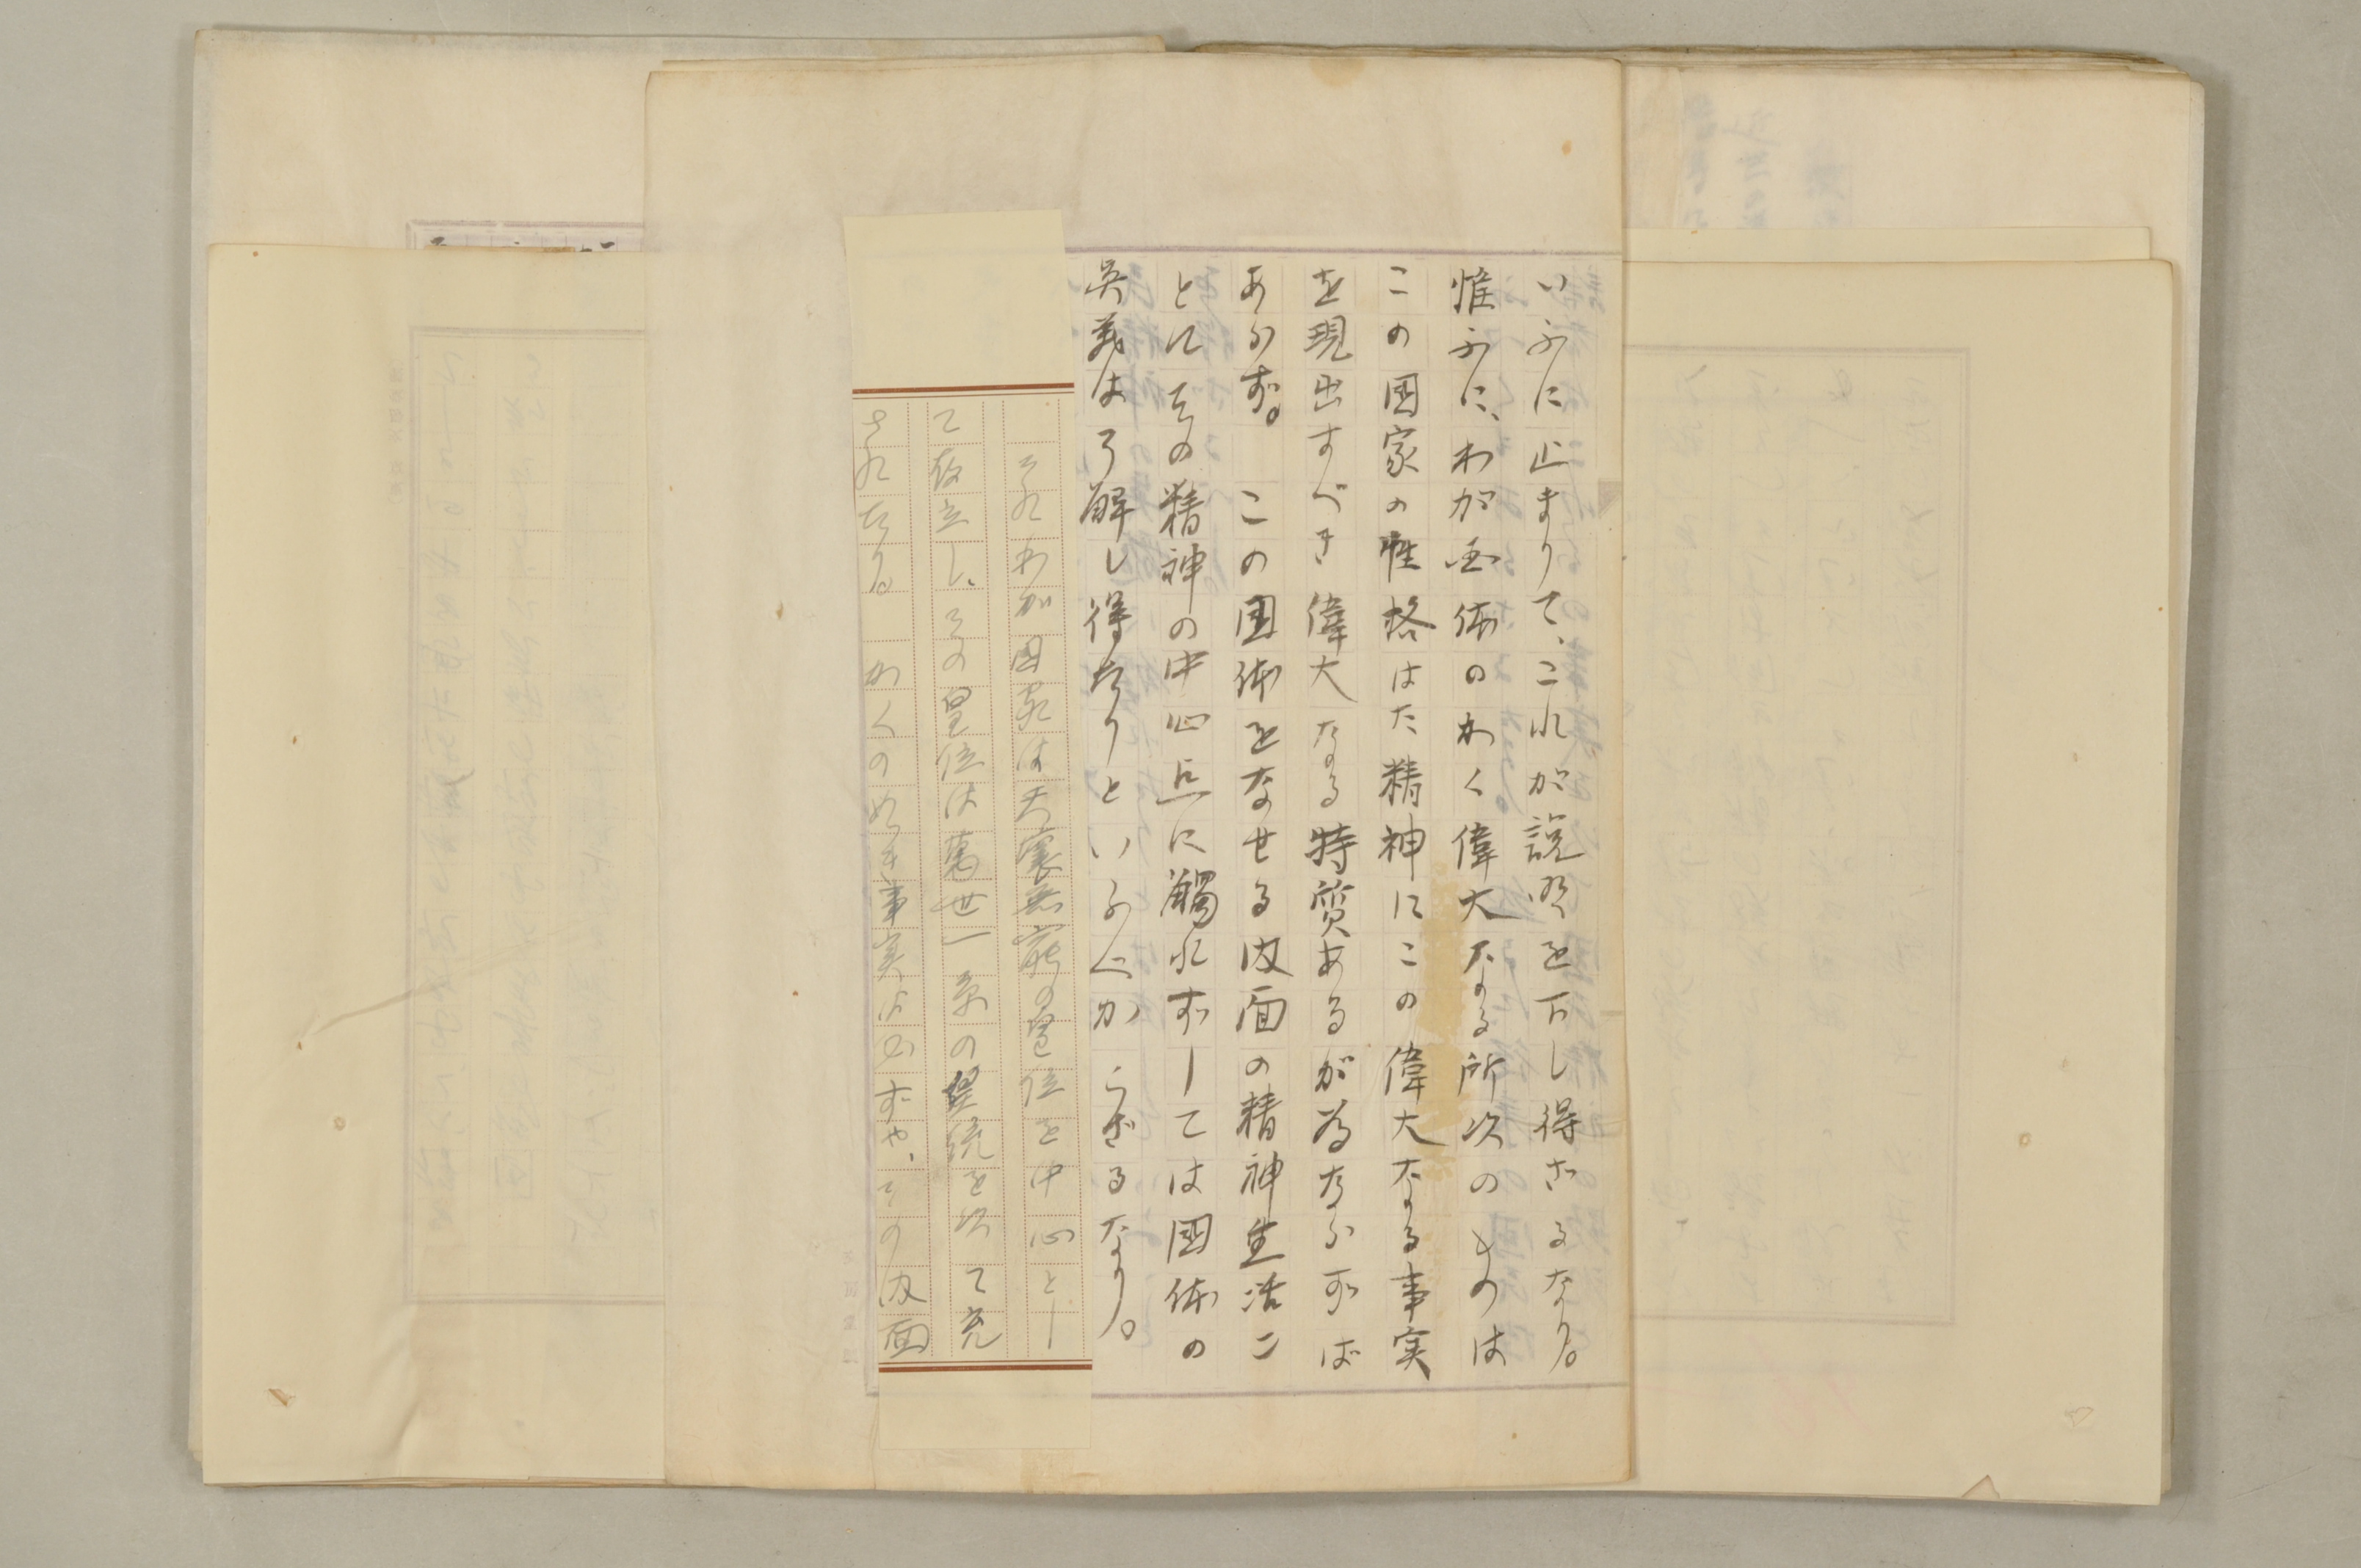 いふに止まりて、これが説明を下し得ざるなり。
惟ふに、わが國体のかく偉大なる所以のものは
この国家の性格はた精神にこの偉大なる事実
を現出すべき偉大なる特質あるが為ならずば
あらず。この国体をなせる内面の精神生活こ
とにその精神の中心点に觸れずしては國体の
眞義は了解し得たりといふべからざるなり。
それわが国家は天壤無窮の皇位を中心とし
て成立し、その皇位は萬世一系の皇統を以て充
されたり。かくの如き事実は必ずや、その内面